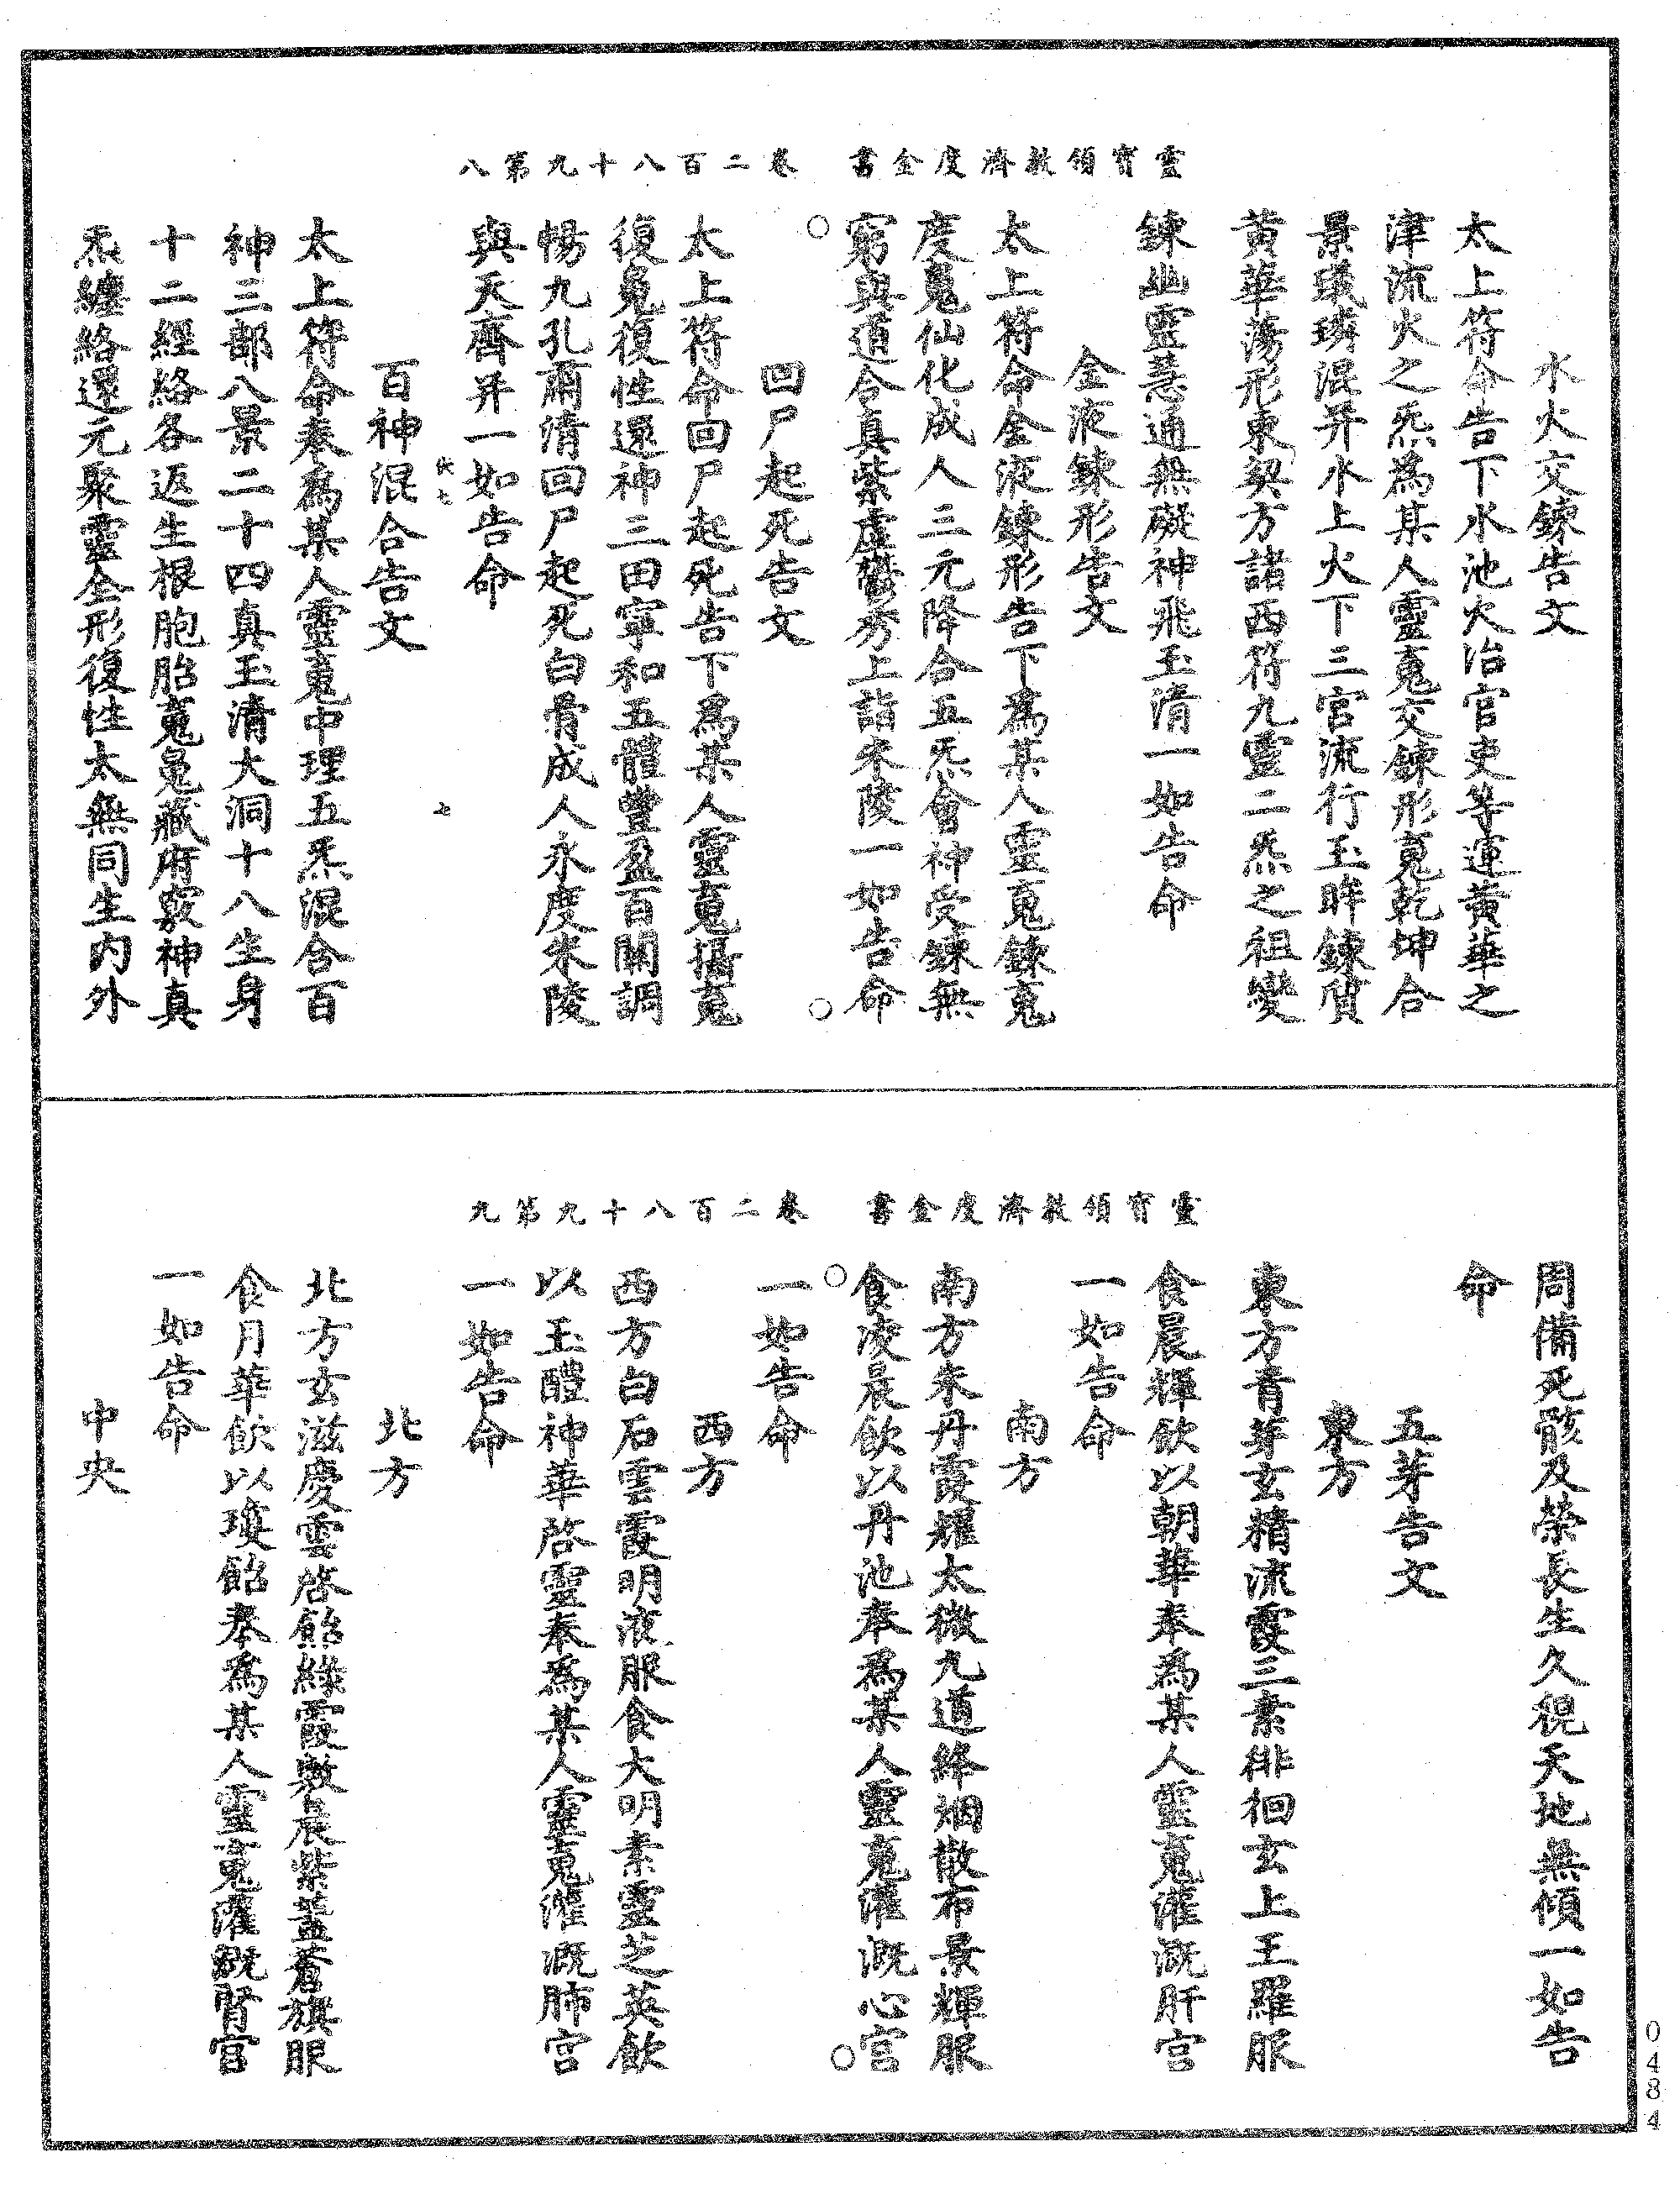 靈寶領教濟度金書　卷二百八十九第八
水火交鍊告文
太上符命告下水池火治官吏等運黃華之
津流火之炁為某人靈䰟交鍊形䰟乾坤合
景璘混并水上火下三官流行玉眸鍊質
黃華蕩形東契方諸西符九靈二炁之祖變
鍊幽靈慧通無礙神飛玉清一如告命
金液鍊形告文
太上符命金液鍊形告下為某人靈䰟鍊䰟
度䰟仙化成人三元降合五炁會神受鍊無
窮與道合真紫虛鬱秀上詣朱陵一如告命
回尸起死告文
太上符命回尸起死告下為某人靈䰟攝䰟
復䰟復性還神三田寧和五體豐盈百關調
暢九孔爾清回尸起死白骨成人永度朱陵
與天齊并一如告命
百神混合告文
七
太上符命奉為某人靈䰟中理五炁混合百
神三部八景二十四真玉清大洞十八生身
十二經絡各返生根胞胎䰟䰟藏府竅神真
炁纏絡還元聚靈全形復性太無同生內外
靈寶領教濟度金書　卷二百八十九第九
周備死骸及榮長生久視天地無傾一如告
命
五芽告文
東方
東方青芽玄精流霞三素徘徊玄上王羅服
食晨輝飲以朝華奉為某人靈䰟灌溉肝宮
一如告命
南方
南方朱丹霞耀太微九道絳烟散布景輝服
食凌晨飲以丹池奉為某人靈䰟灌溉心宮
一如告命
西方
西方白石雲霞明液服食大明素靈芝英飲
以玉醴神華啓靈奉為某人靈䰟灌溉肺宮
一如告命
北方
北方玄滋慶雲啓飴綠霞敷晨紫蓋蒼旗服
食月華飲以瓊飴奉為某人靈䰟灌溉腎宮
一如告命
中央
0484